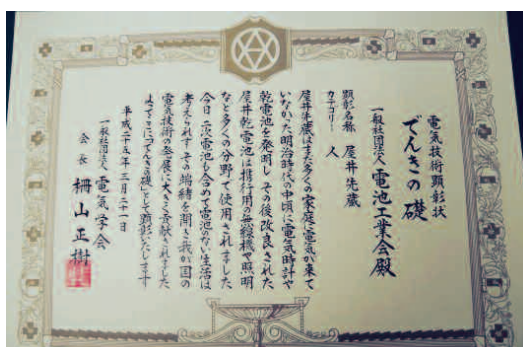 電気技術顕彰状
でんきの礎
一般社団法人 電池工業会殿
顕彰名称 屋井先蔵
カテゴリー 人
屋井先蔵はまだ多くの家庭に電気が来て
いなかった明治時代の中頃に電気時計や
乾電池を発明し その後改良された
屋井乾電池は携行用の無線機や照明
など多くの分野で使用されました
今日 二次電池も含めて電池のない生活は
考えられず その端緒を開き我が国の
電気技術の発展に大きく貢献されました
よってここにでんきの礎として顕彰いたします
平成二十五年三月二十一日
一般社団法人 電気学会
会長 柵山正樹